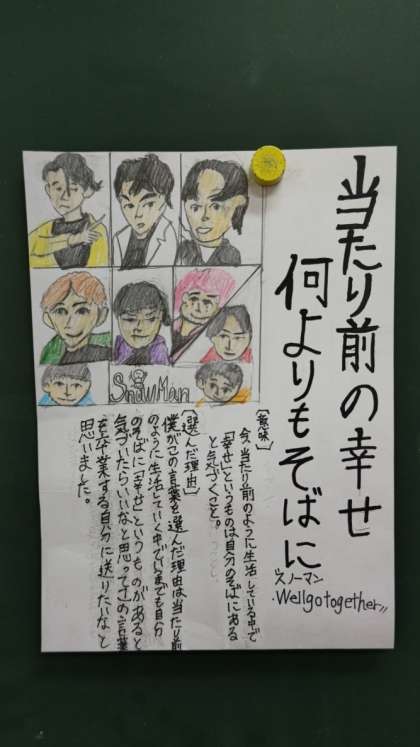 当たり前の幸せ
何よりもそばに
スノーマン
Wellgotogether
SnowMan
〔意味〕
今、当たり前のように生活している中で
「幸せ」というものは自分のそばにある
と気づくこと。
〔選んだ理由〕
僕がこの言葉を選んだ理由は当たり前
のように生活していく中でいまでも自分
のそばに「幸せ」というものがあると
気づいたらいいなと思ってこの言葉
を卒業する自分に送りたいなと
思いました。